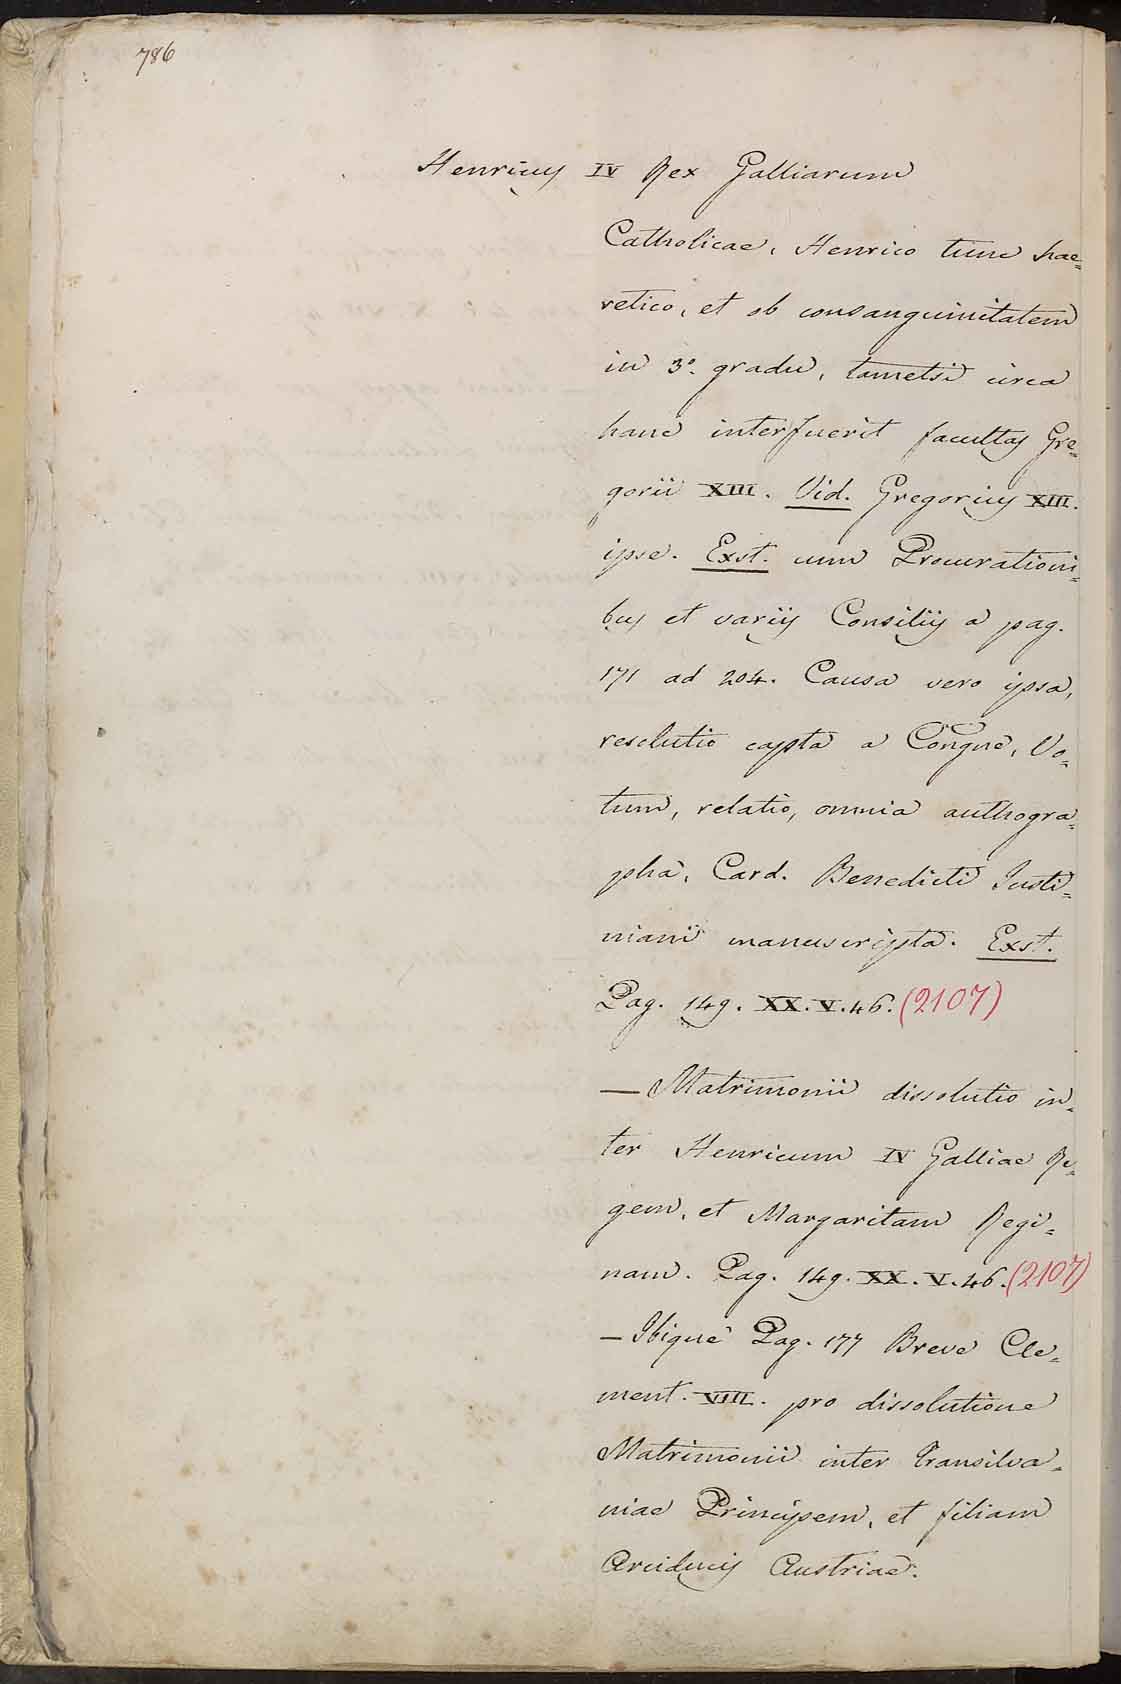 786
Henricus IV Rex Galliarum
Catholicae, Henrico tunc hae=
retico, et ob consanguinitatem
in 3º. gradu, tametsi circa
hanc interfuerit facultas Gre=
gorii XIII. Vid. Gregorius XIII.
ipse. Exst. cum Procurationi=
bus et variis Consiliis a pag.
171 ad 204. Causa vero ipsa,
resolutio capta a Congne, Vo=
tum, relatio, omnia authogra=
pha, Card. Benedicti Iusti=
niani manuscripta. Exst.
Pag. 149. XX. V. 46. (2107)
— Matrimonii dissolutio in=
ter Henricum IV Galliae Re=
gem, et Margaritam Regi=
nam. Pag. 149. XX. V. 46. (2107)
— Ibique Pag. 177 Breve Cle=
ment. VIII. pro dissolutione
Matrimonii inter Transilva=
niae Principem, et filiam
Arciducis Austriae.